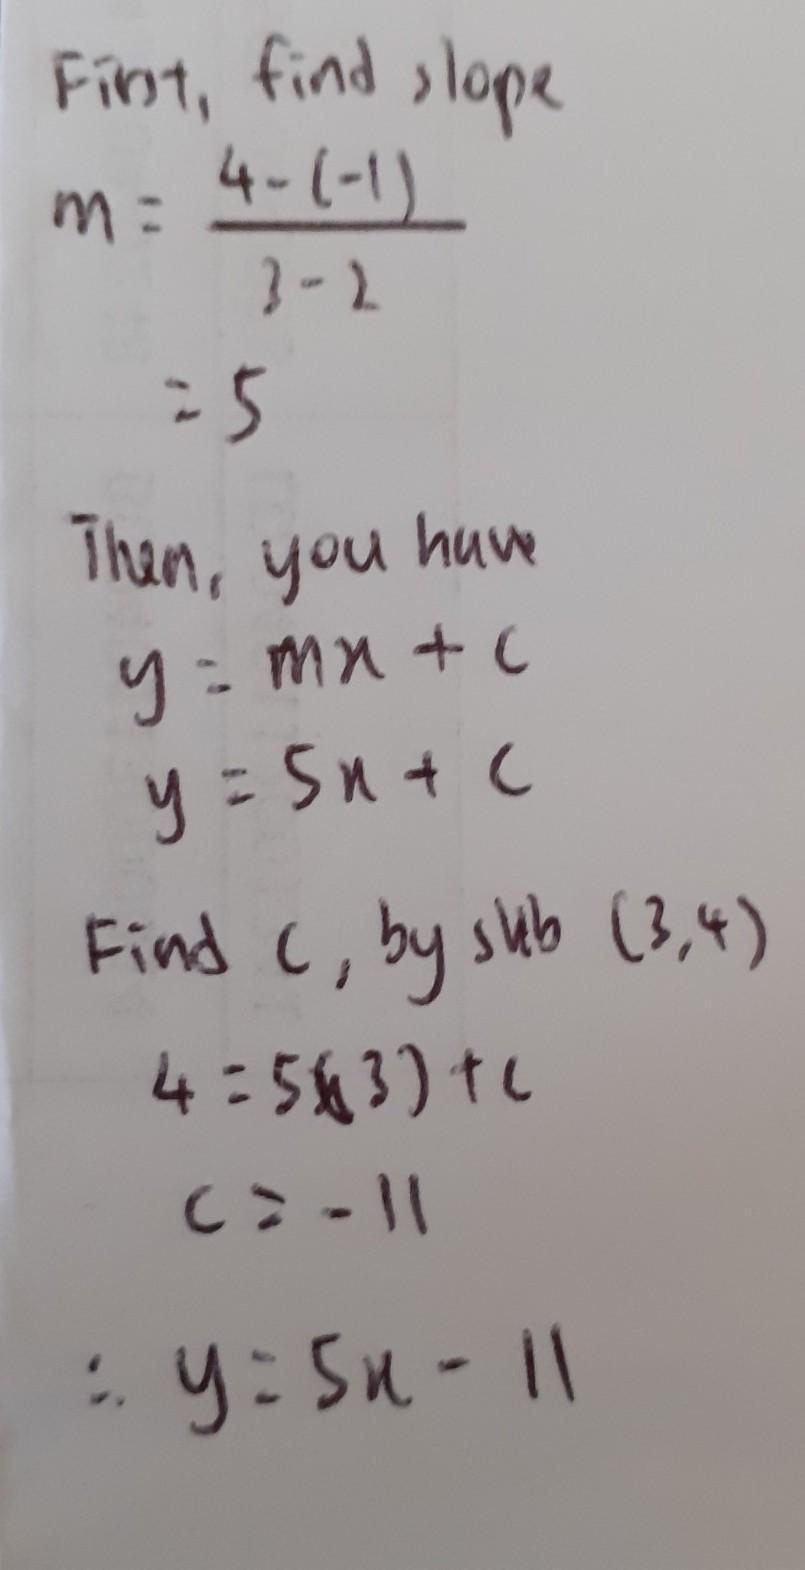 First, find slope
m = 4-(-1)
3-2
= 5
Then, you have
y = mx + c
y = 5x + c
Find c, by sub (3,4)
4 = 5(3) + c
c = -11
∴ y = 5x - 11